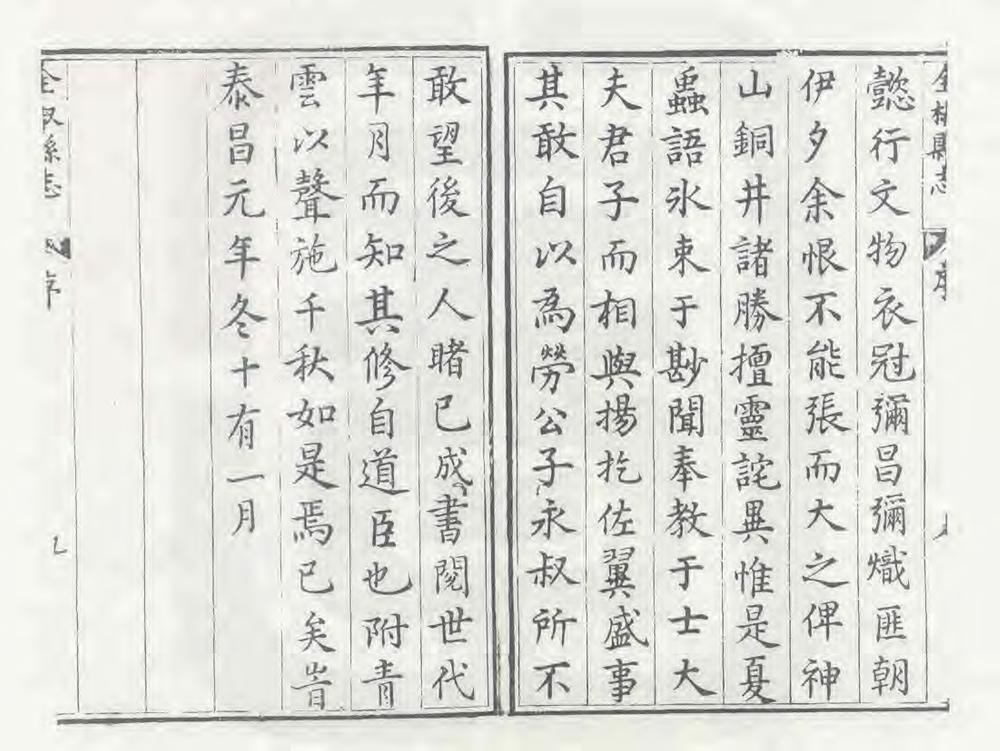 全椒縣志
序
懿行文物衣冠彌昌彌熾匪朝
伊夕余恨不能張而大之俾神
山銅井諸勝擅靈詫異惟是夏
蟲語氷東于尠聞奉教于士大
夫君子而相與揚扢佐翼盛事
其敢自以爲勞公子永叔所不
敢望後之人睹已成書閱世代
年月而知其修自道臣也附青
雲以聲施千秋如是焉已矣旹
泰昌元年冬十有一月
全椒縣志
序